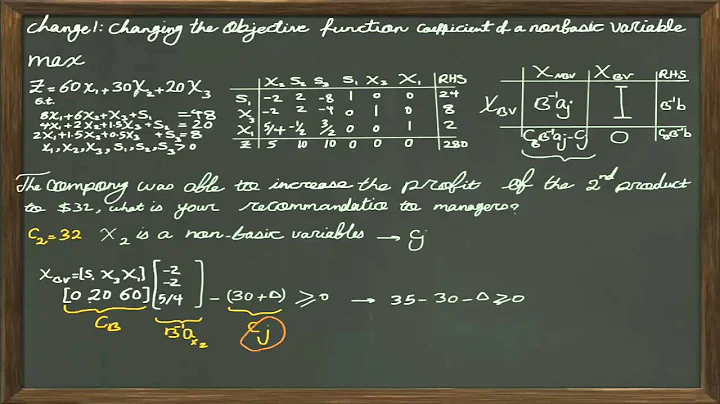 change1: Changing the Objective function coefficient of a nonbasic variable
max
Z = 60x1 + 30X2 + 20X3
s.t.
8X1+6X2+X3+S1 =48
4X1+2X2+1.5X3+S2 = 20
2X1+1.5X2+0.5X3 +S3=8
x1,X2,X3,S1,S2,S3>0
X2 S2 S3 S1 X3 X1 RHS
S1 -2 2 -8 1 0 0 24
X3 -2 2 -4 0 1 0 8
X1 5/4 -1/2 3/2 0 0 1 2
Z 5 10 10 0 0 0 280
XNBV XBV RHS
XBV B⁻¹aj I B⁻¹b
CBB⁻¹aj-Cj 0 CBB⁻¹b
The company was able to increase the profit of the 2nd product
to $32, what is your recommandatio to managers?
C2=32 X2 is a non-basic variables → Cj
XBV=[S, X3 X1] [-2 -2 5/4]
[0 20 60] - (30+Δ) ≥0 → 35-30-Δ≥0
CB B⁻¹ax2 Cj